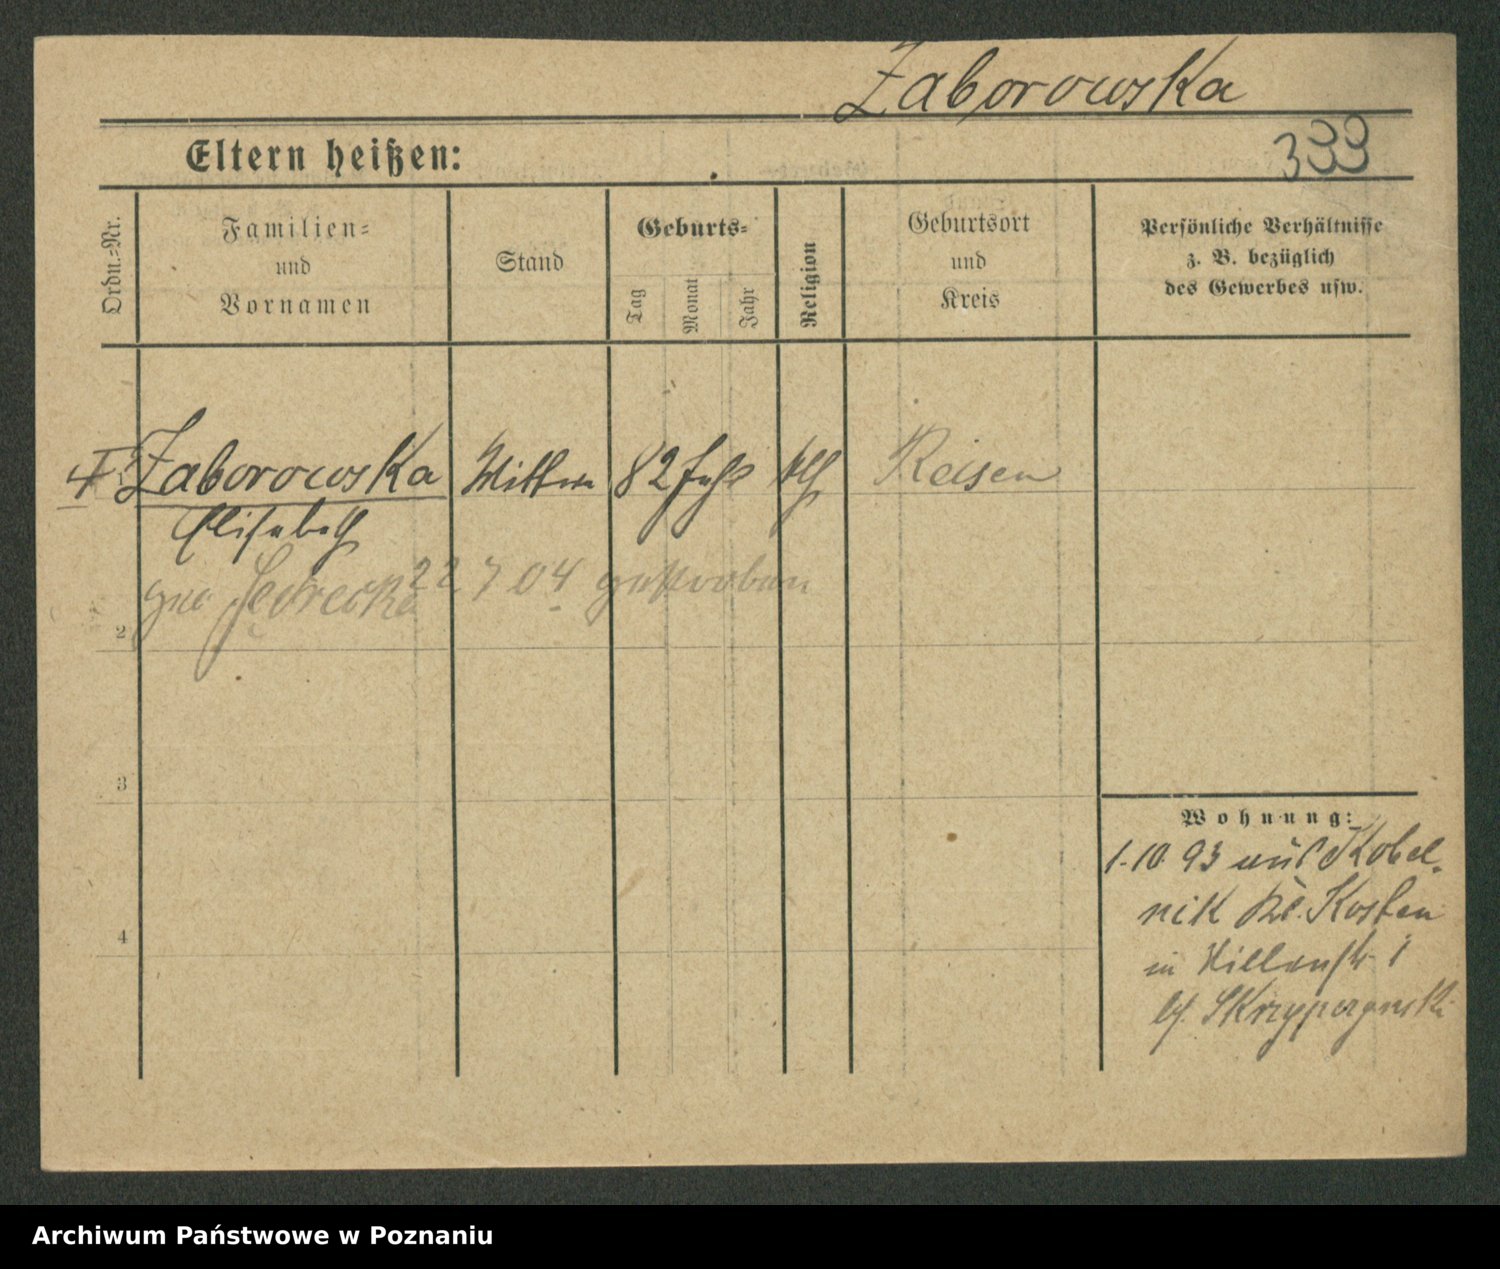 Zaborowska
Eltern heißen:
399
Ordn.=Nr.
Familien=
und
Vornamen
Stand
Geburts=
Tag
Monat
Jahr
Religion
Geburtsort
und
Kreis
Persönliche Verhältnisse
z. B. bezüglich
des Gewerbes usw.
Zaborowska Wittwe 82 Jahr kth Reisen
Elisabeth
22 7 04 gestorben
2
3
4
Wohnung:
1.10.93 aus Kobel-
nik Kr. Kosten
in 1
bei
Archiwum Państwowe w Poznaniu